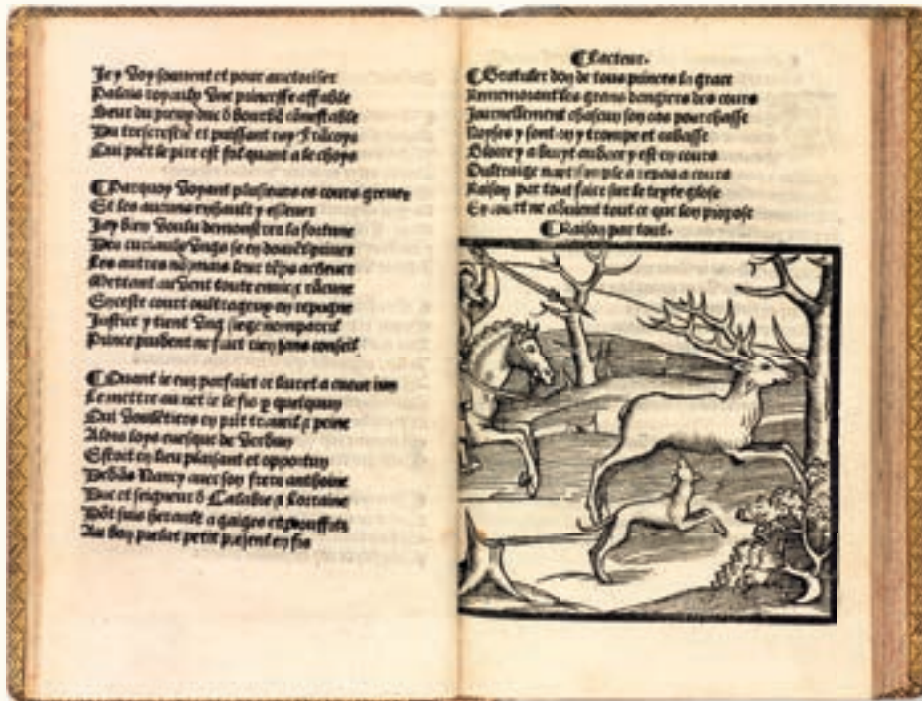 Je y voy souvent et pour auctoriser
Palais royaulx une princesse affable
Seur du preux duc d bourbō cōnestable
Du trescrestiē et puissant roy Frācoys
Qui priēt le pire est fol quant a le choys
Parquoy voyant plusieurs es cours grever
Et les aucuns enhault y eslever
Jay bien voulu demonstrer la fortune
Des curiaulx ungs se en
Les autres nō mais leur tēps
Mettant au vent toute
En ceste court oultrageux en repugne
Justice y tient ung siege nompareil
Prince prudent ne faict rien sans conseil
Quant ie euz parfaict ce livret a cueur ieun
Le mettre au net ie le fis p quelquun
Qui voulētiers en prit travail & peine
Alors loys evesque de Verdun
Estoit en lieu plaisant et opportun
Nancy avec son frere anthoine
Duc et seigneur d Calabre & Lorraine
Dōt suis herault a gaiges et
Au bon prelat petit present en fis
Lacteur.
Gratuler doy de tous princes la grace
Rememorant les grans dangiers des cours
Journellement chascun son cas pourchasse
Noyses y sont on y trompe et cabasse
Gloire y a bruyt y est en cours
Oultraige nuyt simple a repos a cours
Raison par tout faict sur le texte glose
En court ne advient tout ce que lon propose
Raison par tout.